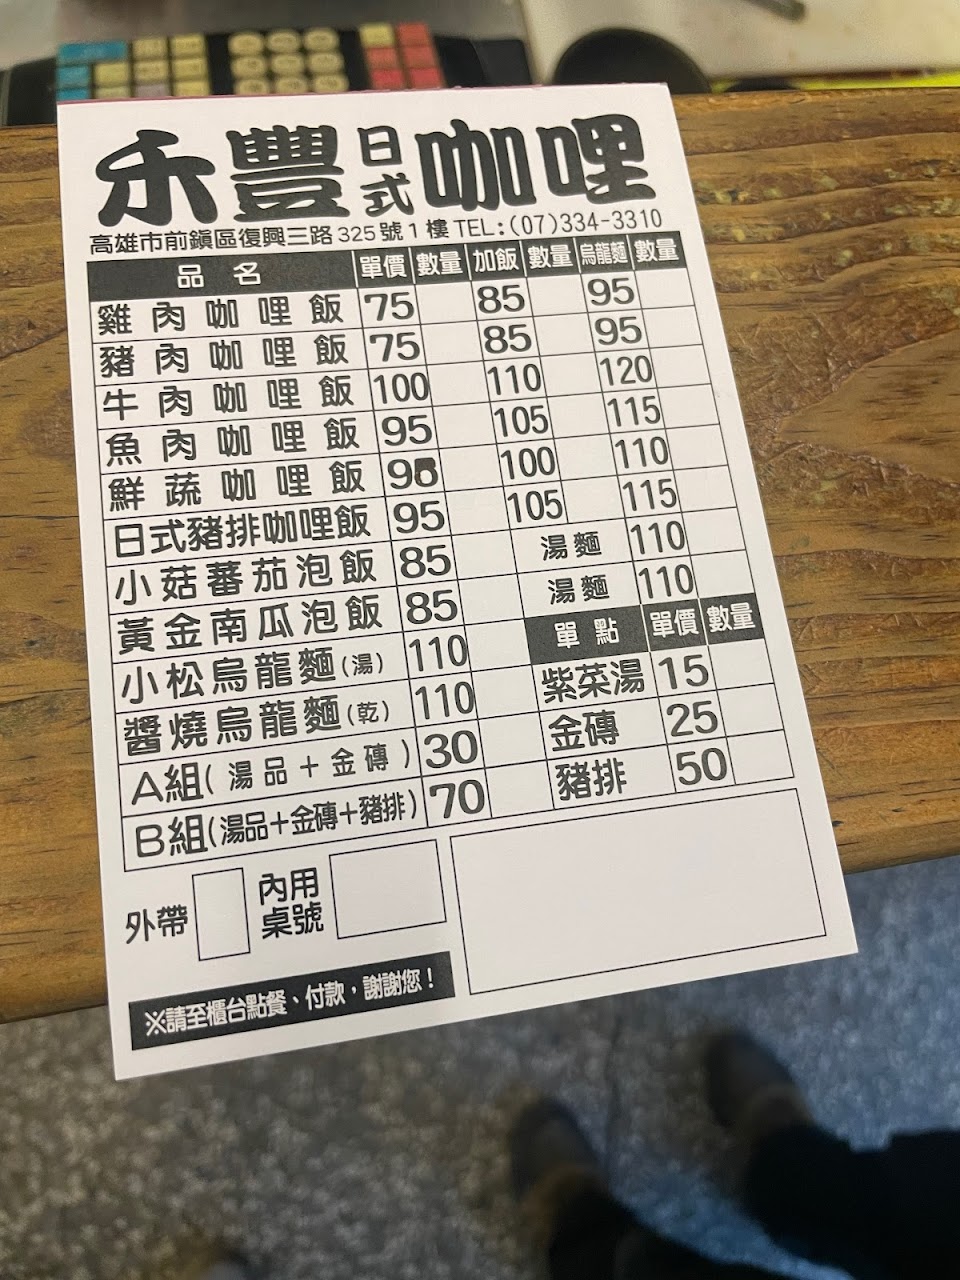 禾豐日式咖哩
高雄市前鎮區復興三路325號1樓 TEL:(07)334-3310
品名 單價 數量 加飯 數量 烏龍麵 數量
雞肉咖哩飯 75 85 95
豬肉咖哩飯 75 85 95
牛肉咖哩飯 100 110 120
魚肉咖哩飯 95 105 115
鮮蔬咖哩飯 90 100 110
日式豬排咖哩飯 95 105 115
小菇蕃茄泡飯 85 湯麵 110
黃金南瓜泡飯 85 湯麵 110
小松烏龍麵(湯) 110 單點 單價 數量
醬燒烏龍麵(乾) 110 紫菜湯 15
A組(湯品+金磚) 30 金磚 25
B組(湯品+金磚+豬排) 70 豬排 50
外帶 內用桌號
※請至櫃台點餐、付款,謝謝您!